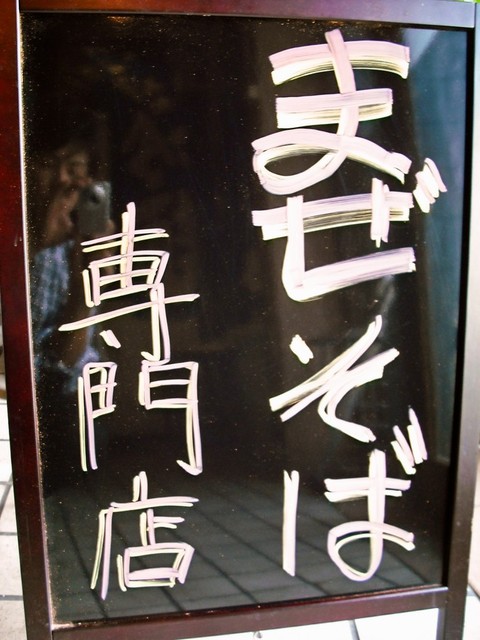 まぜそば
専門店